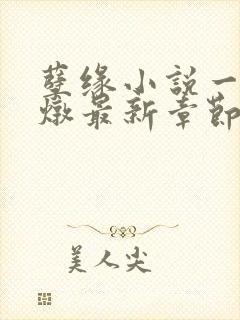 孽缘小说一
燉最新章節
美人尖